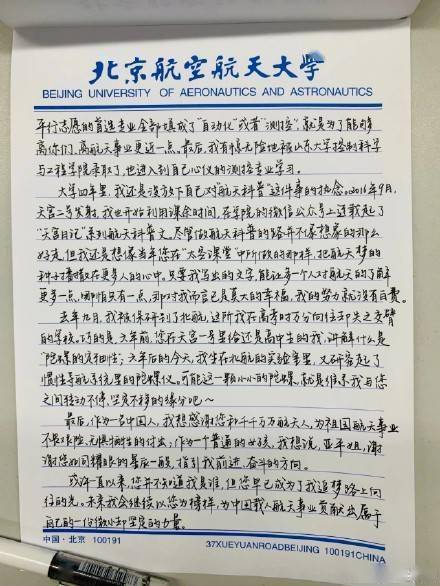 北京航空航天大学
BEIJING UNIVERSITY OF AERONAUTICS AND ASTRONAUTICS
平行志愿的首选专业全部填成了“自动化”或者“测控”,就是为了能够
离你们、离航天事业更近一点。最后,我有惊无险地被山东大学控制科学
与工程学院录取了,也进入到自己心仪的测控专业学习。
大学四年里,我还是没放下自己对“航天科普”这件事的执念。2016年9月,
天宫二号发射,我也开始利用课余时间,在学院的微信公众号上连载起了
“天宫日记”系列航天科普文。尽管做航天科普的路并不像想象的那么
好走,但我还是想像当年您在“太空课堂”中所做的那样,把航天梦的
种子播撒在更多人的心中。只要我写出的文字,能让多一个人对航天的了解
更多一点,哪怕只有一点,那对我而言已是莫大的幸福,我的努力就没有白费。
去年九月,我被保研到了北航,这所我在高考时万分向往却失之交臂
的学校。巧的是,六年前,您在天宫一号里给还是高中生的我,讲解什么是
“陀螺的定轴性”;六年后的今天,我坐在北航的实验室里,又研究起了
惯性导航系统里的陀螺仪。可能这一颗小小的陀螺,就是维系我与您
之间转动不停、坚定不移的缘分吧~
最后,作为一名中国人,我想感谢您和千千万万航天人,为祖国航天事业
不畏艰险、无惧牺牲的付出;作为一个普通的女孩,我想说,亚平姐,谢
谢您如同耀眼的星辰一般,指引我前进、奋斗的方向。
或许一直以来,您并不知道我是谁,但您早已成为了我追梦路上向
往的光。未来我会继续以您为榜样,为中国载人航天事业贡献出属于
自己的一份微小却坚定的力量。
中国·北京 100191
37XUEYUANROADBEIJING 100191CHINA